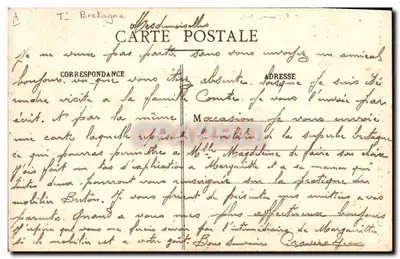 T: Bretagne
Mesdemoiselles
CARTE POSTALE
je ne veux pas partir sans vous envoyer un amical
bonjour. vu que vous étiez absente lorsque je suis
CORRESPONDANCE
ADRESSE
rendre visite a la famille Comte. je vous l'avais par
écrit. Et par la même occasion je vous envoie
une carte laquelle la superbe bretagne
ce que pourras permettre a Mlle Magdeleine de faire son choix
J'ais fait un tas d'explication a Marguerite et a sa maman qui
toutes deux pourront vous renseigner sur la
mobilier Breton. je vous prient de présenter mes amitiés a vos
parents. Quand a vous mes plus affectueux bonjours
J'espère que vous me fairez savoir par l'intermédiaire de Marguerite
si le mobilier est a votre goût. Bons Souvenirs